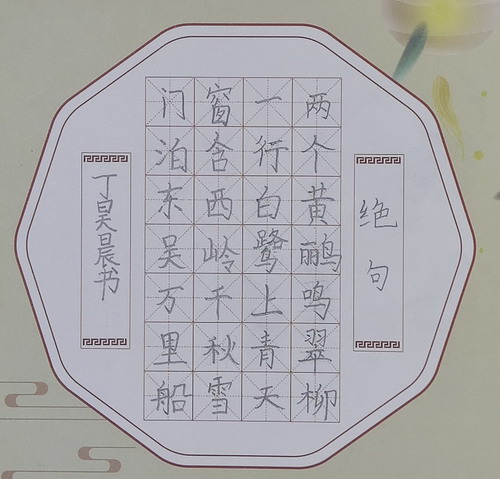 绝句
两个黄鹂鸣翠柳
一行白鹭上青天
窗含西岭千秋雪
门泊东吴万里船
丁昊晨书